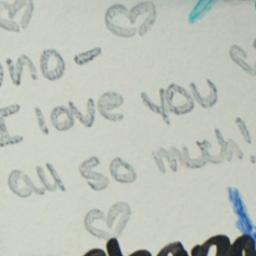 I love you
all so much!